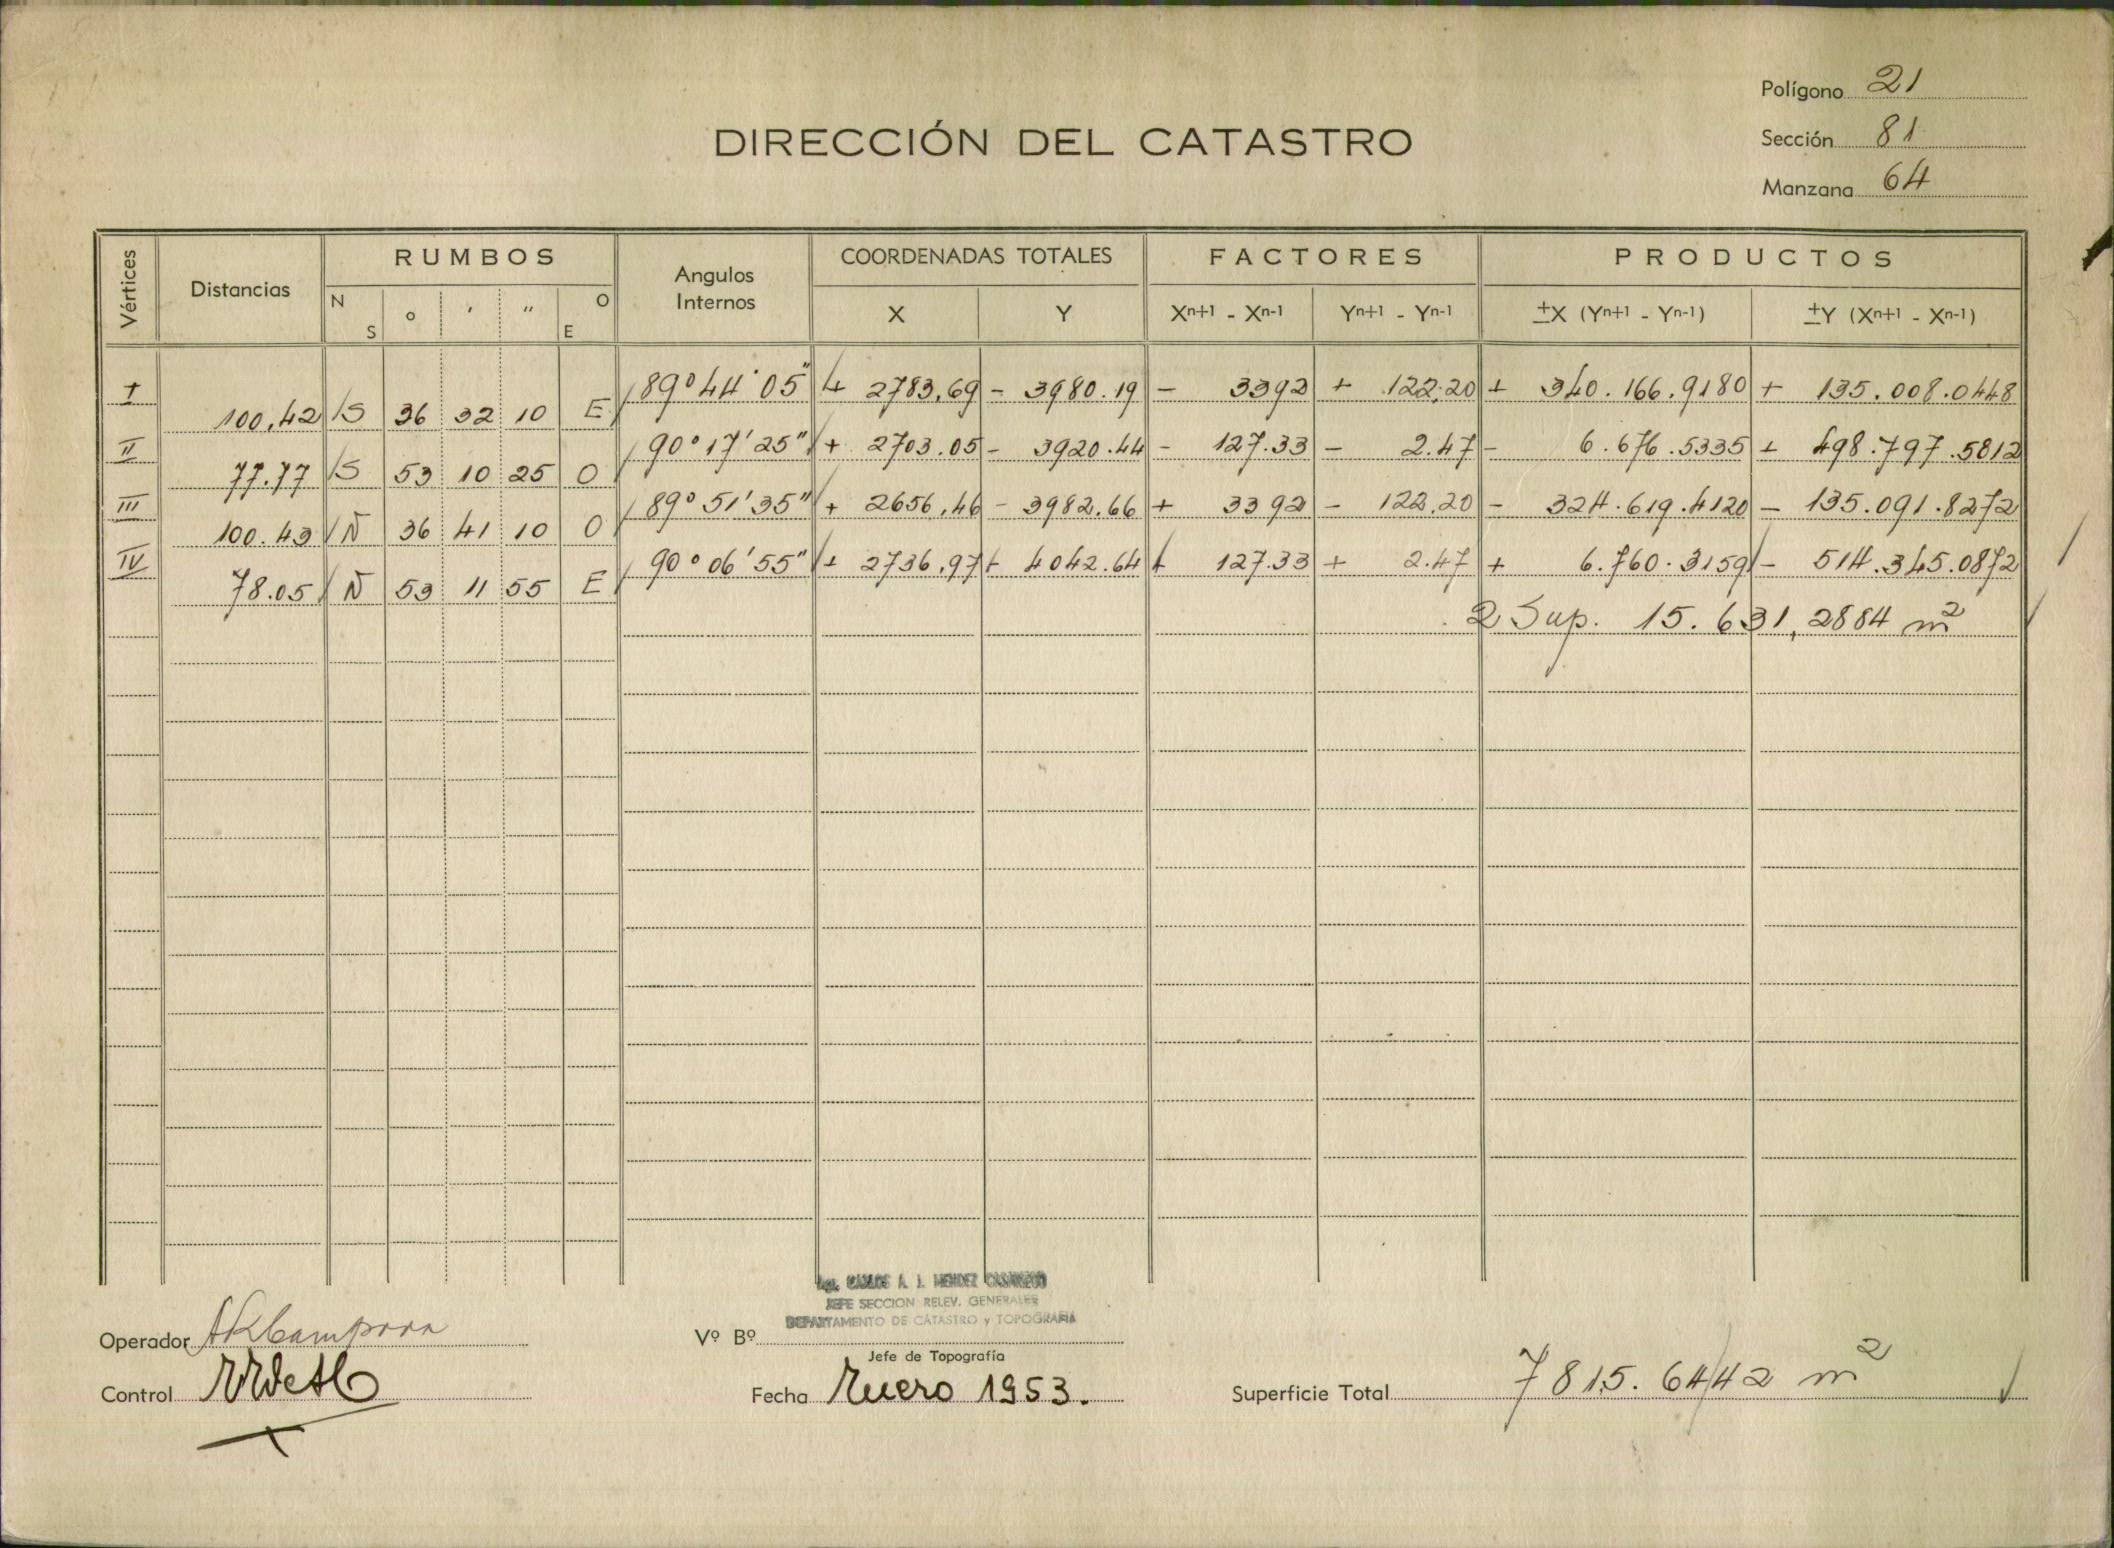 Polígono 21
DIRECCIÓN DEL CATASTRO
Sección 81
Manzana 64
Vértices Distancias RUMBOS N S ° ' " O E Angulos Internos COORDENADAS TOTALES X Y FACTORES Xn+1 - Xn-1 Yn+1 - Yn-1 PRODUCTOS ±X (Yn+1 - Yn-1) ±Y (Xn+1 - Xn-1)
I 89° 44' 05" + 2783,69 - 3980.19 - 3392 + 122,20 + 340.166.9180 + 135.008.0448
100,42 S 36 32 10 E
II 90° 17' 25" + 2703.05 - 3920.44 - 127.33 - 2.47 - 6.676.5335 + 498.797.5812
77.77 S 53 10 25 O
III 89° 51' 35" + 2656,46 - 3982.66 + 3392 - 122,20 - 324.619.4120 - 135.091.8272
100.43 N 36 41 10 O
IV 90° 06' 55" + 2736,97 + 4042.64 + 127.33 + 2.47 + 6.760.3159 - 514.345.0872
78.05 N 53 11 55 E
2 Sup. 15.631,2884 m²
Ing. CARLOS A. J. MENDEZ
JEFE SECCION RELEV. GENERALES
DEPARTAMENTO DE CATASTRO y TOPOGRAFIA
Operador
Vº Bº
Jefe de Topografía
Control
Fecha Enero 1953.
Superficie Total 7815.6442 m²